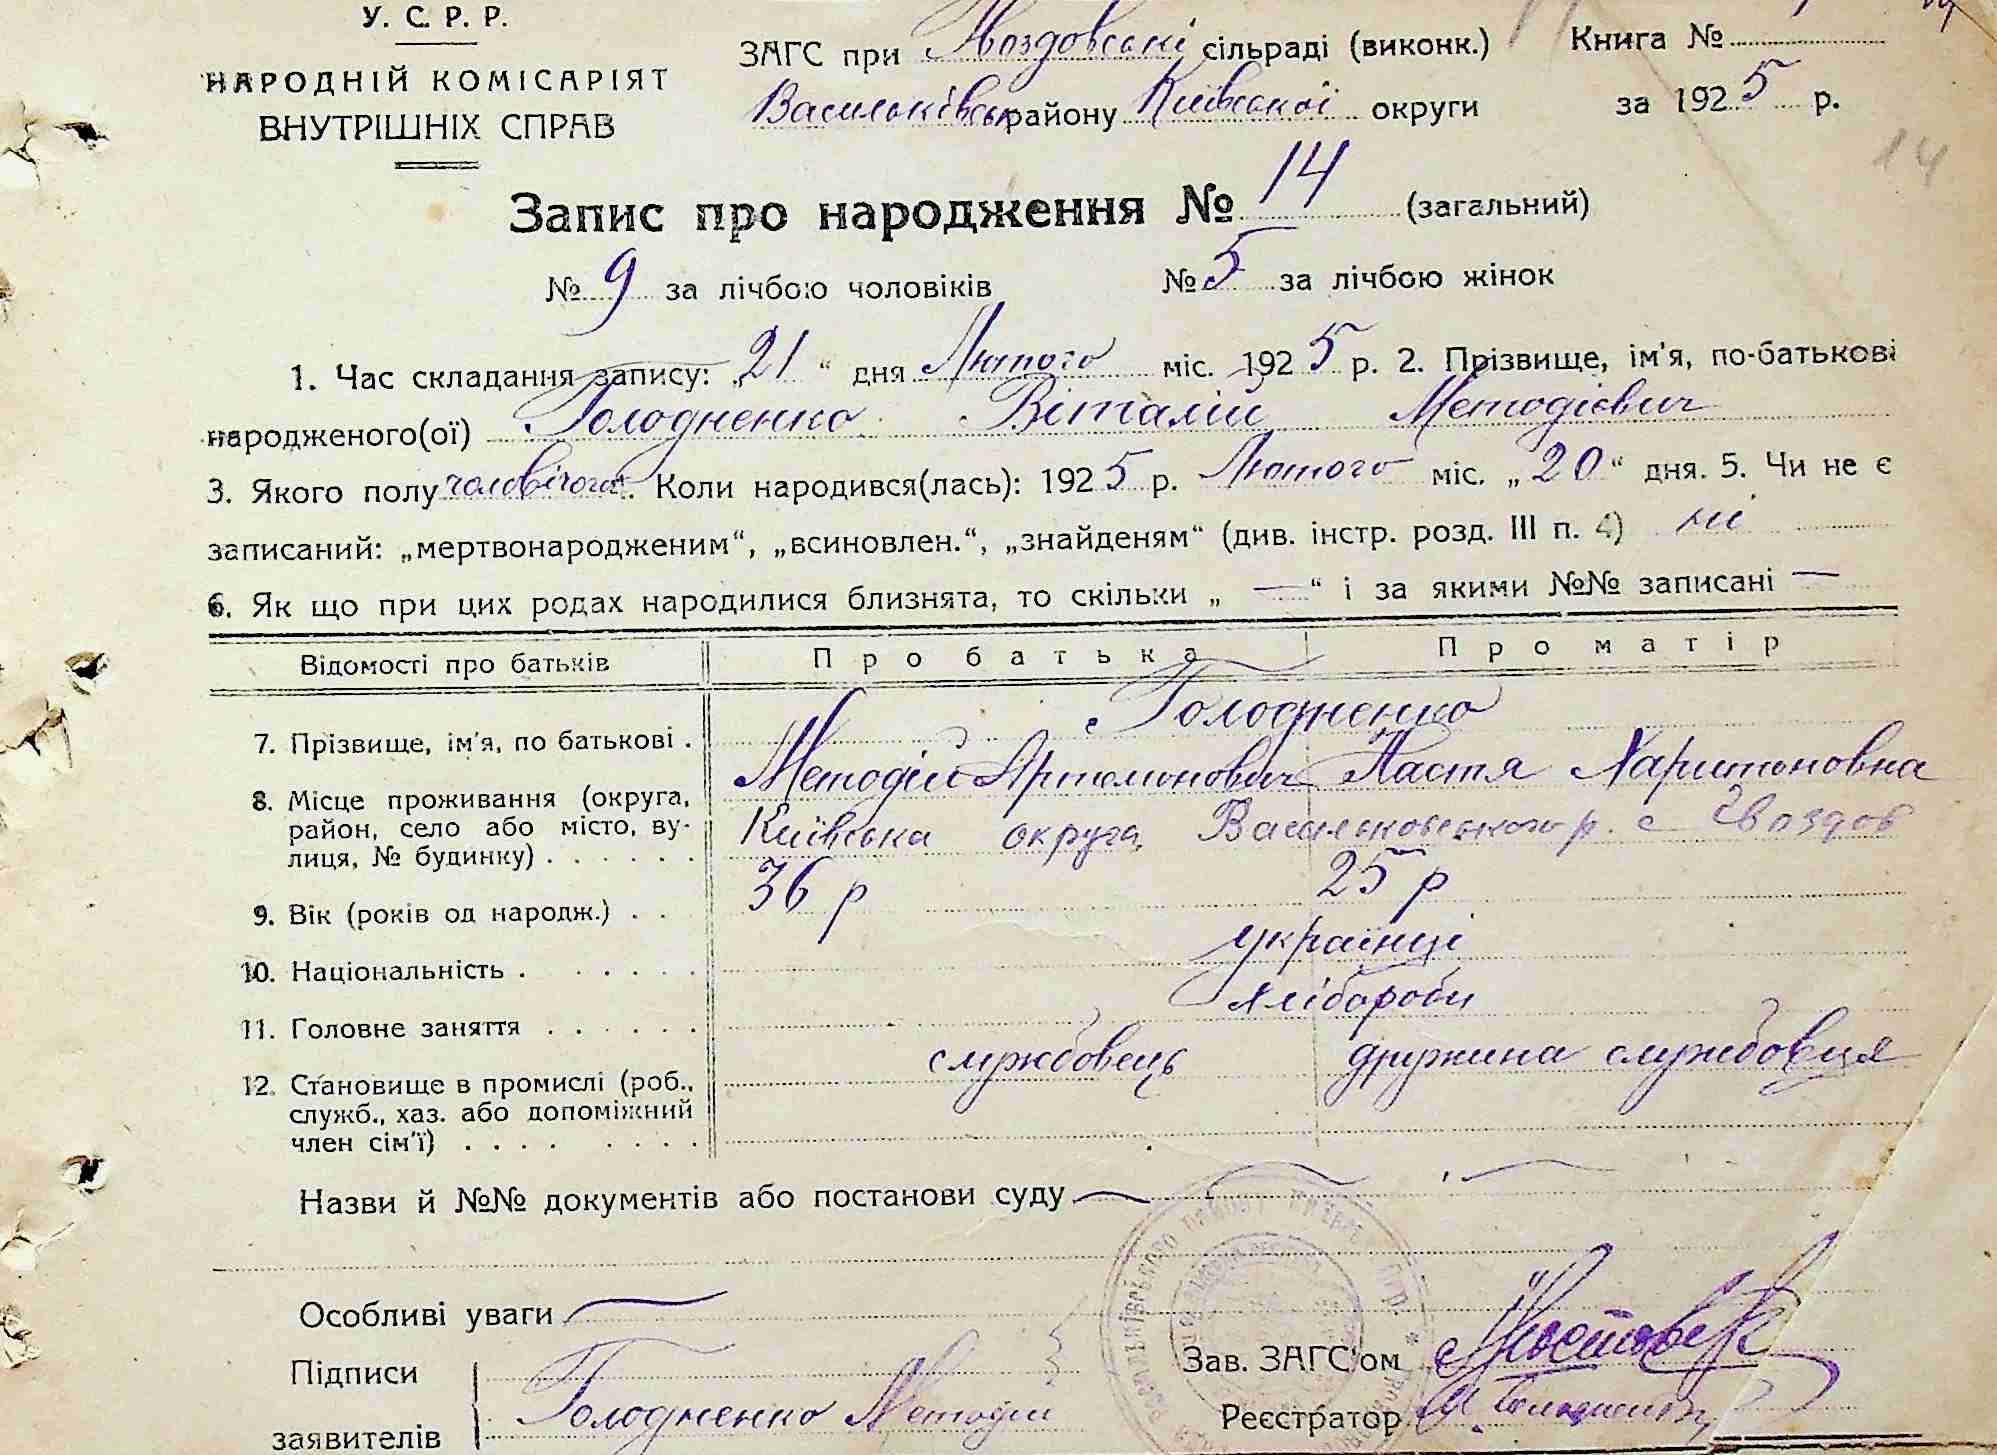 У. С. Р. Р.
НАРОДНІЙ КОМІСАРІЯТ
ВНУТРІШНІХ СПРАВ
ЗАГС при Гвоздовській сільраді (виконк.)
Васильківськ району Київської округи
Книга №
за 1925 р.
14
Запис про народження № 14 (загальний)
№ 9 за лічбою чоловіків № 5 за лічбою жінок
1. Час складання запису: „21“ дня Лютого міс. 1925 р. 2. Прізвище, ім'я, по-батькові
народженого(ої) Голодненко Віталій Методієвич
3. Якого полу чоловічого 4. Коли народився(лась): 1925 р. Лютого міс. „20“ дня. 5. Чи не є
записаний: „мертвонародженим“, „всиновлен.“, „знайденям“ (див. інстр. розд. III п. 4) ні
6. Як що при цих родах народилися близнята, то скільки „ — “ і за якими №№ записані —
Відомості про батьків Про батька Про матір
7. Прізвище, ім'я, по батькові . Голодненко
Методій Артамонович Настя Харитоновна
8. Місце проживання (округа,
район, село або місто, ву-
лиця, № будинку) . . . . . . Київська округа, Васильковського р. с Гвоздов
9. Вік (років од народж.) . . 36 р 25 р
10. Національність . . . . . . українці
11. Головне заняття . . . . . . хлібороби
12. Становище в промислі (роб., службовець дружина службовця
служб., хаз. або допоміжний
член сім'ї) . . . . . . . .
Назви й №№ документів або постанови суду —
Особливі уваги —
Підписи
заявителів Голодненко Методій
Зав. ЗАГС'ом
Реєстратор